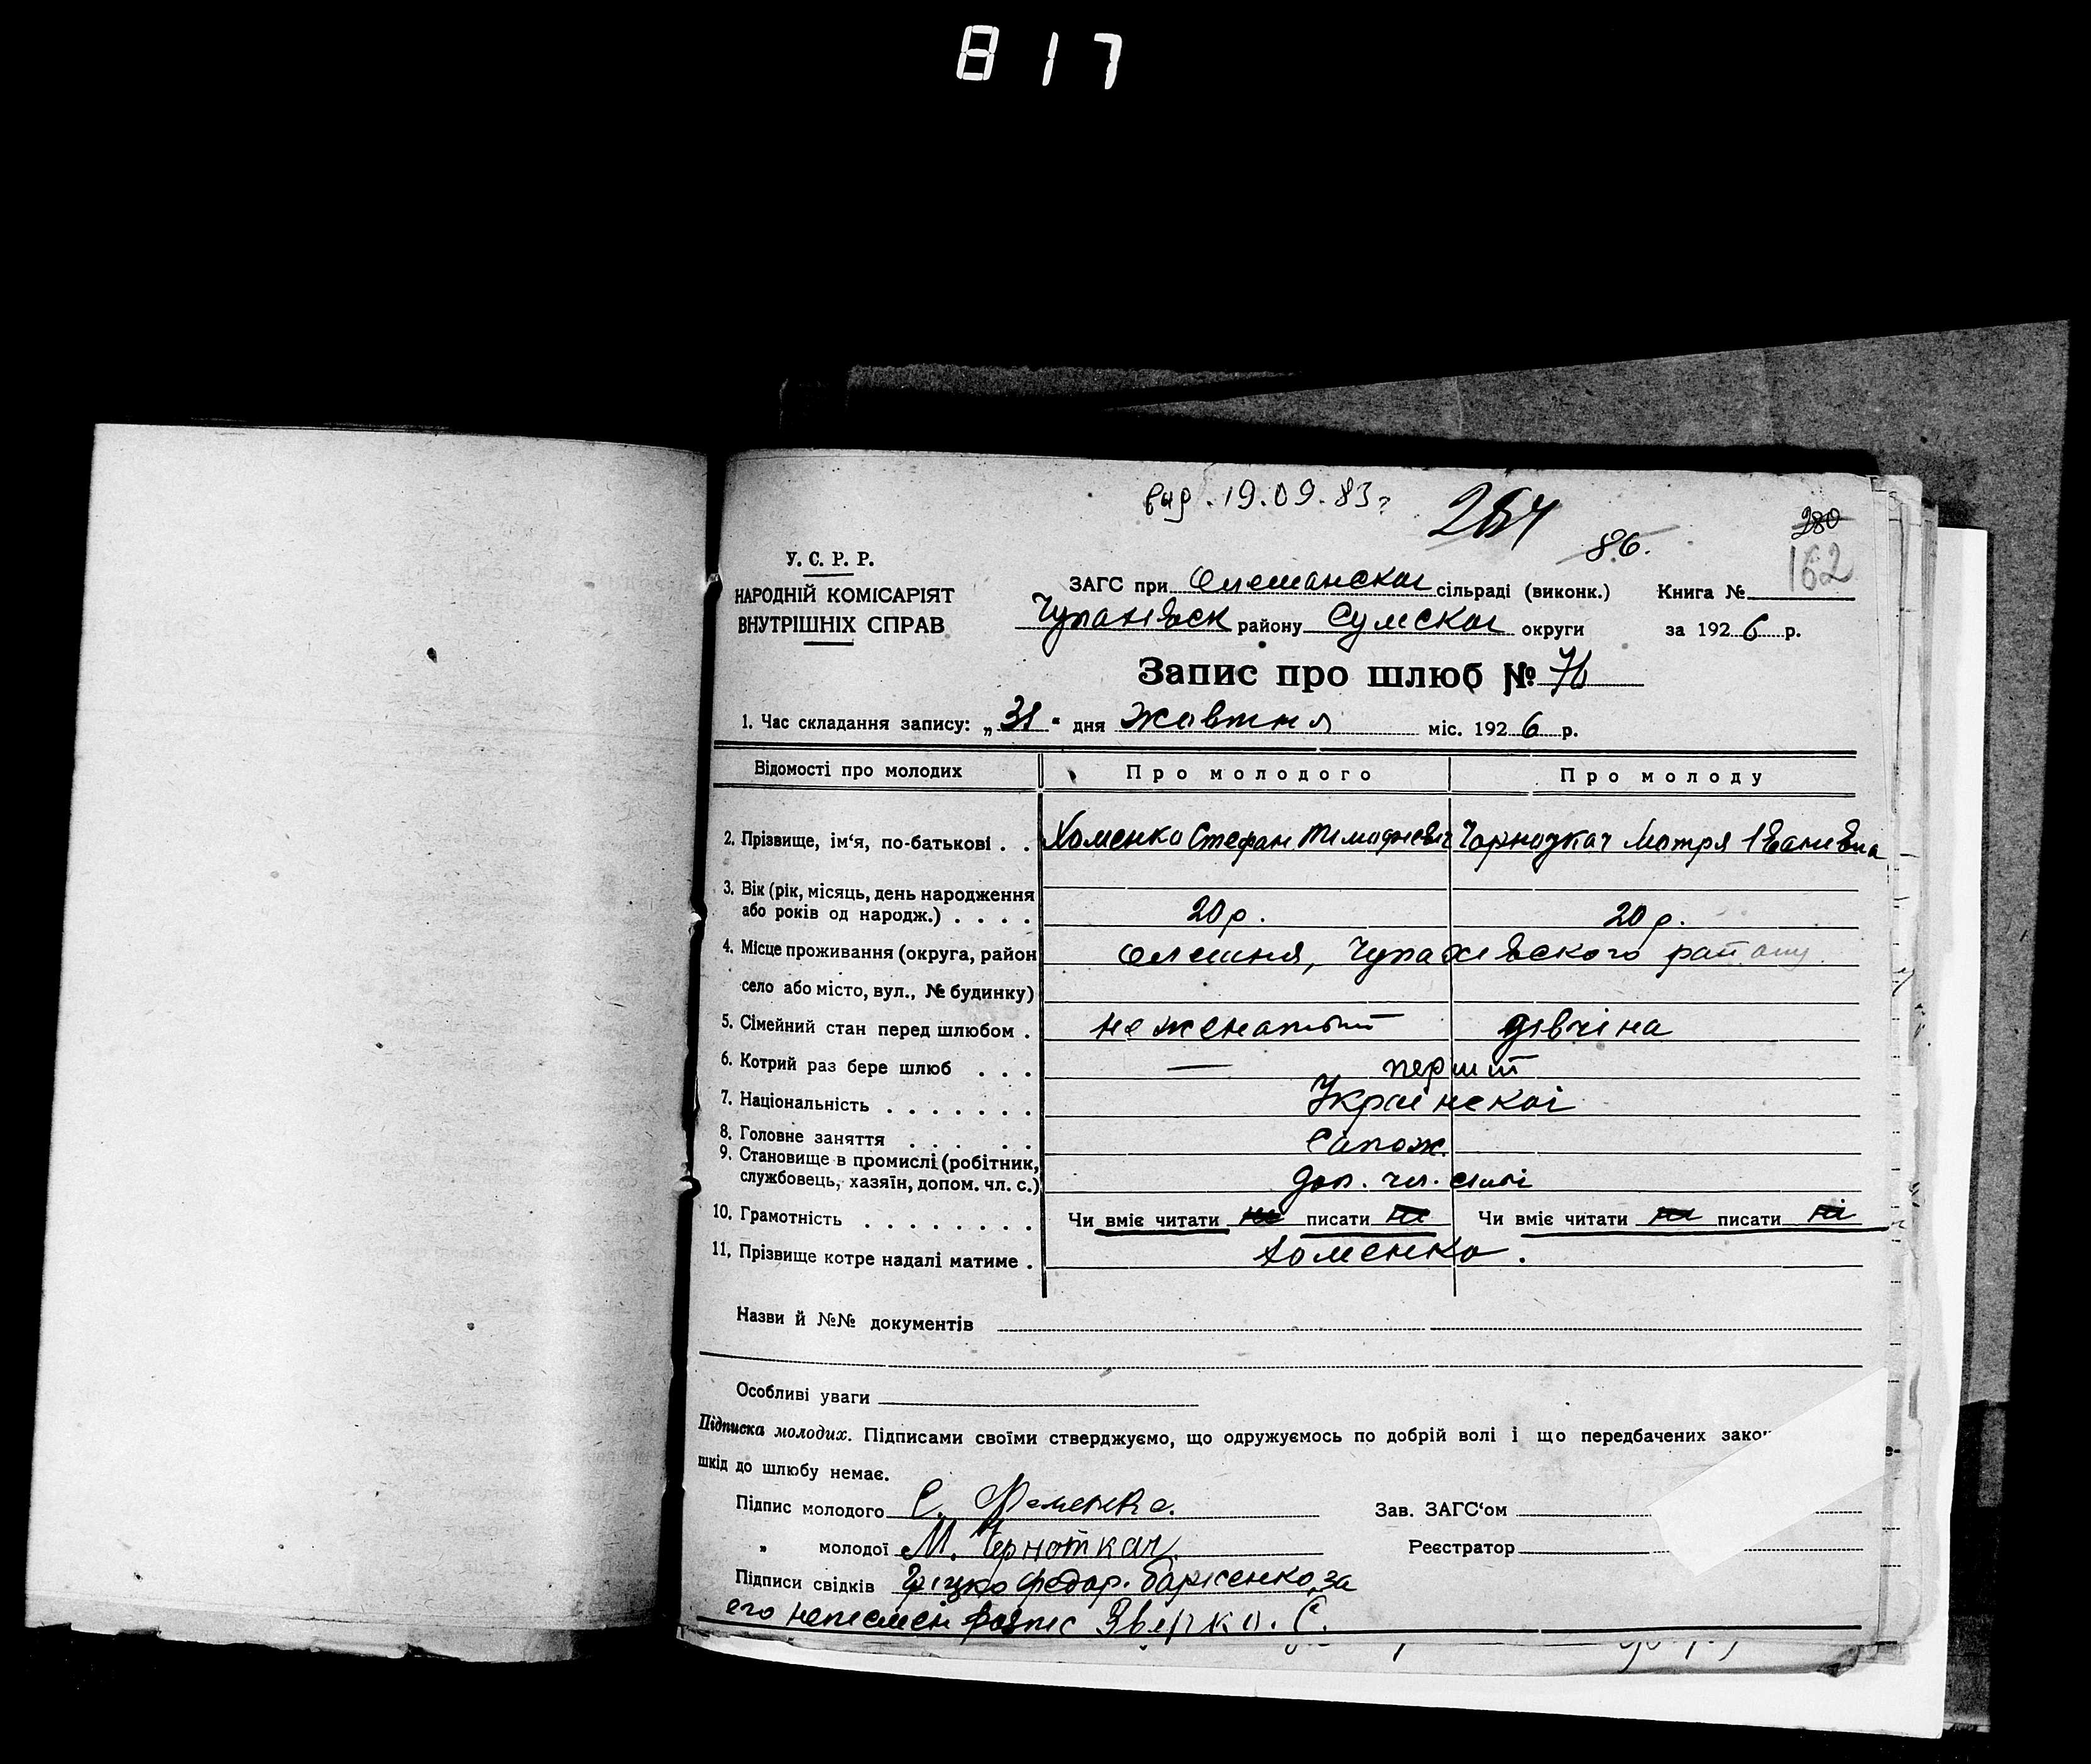 817
вид. 19.09.83г
264
86.
280
162
У. С. Р. Р.
НАРОДНІЙ КОМІСАРІЯТ
ВНУТРІШНІХ СПРАВ
ЗАГС при Олешанскої сільраді (виконк.) Книга №
Чупахівск району Сумскої округи за 1926 р.
Запис про шлюб № 76
1. Час складання запису: „31" дня Жовтня міс. 1926 р.
Відомості про молодих Про молодого Про молоду
2. Прізвище, ім'я, по-батькові . . Хоменко Стефан Тимофієвіч Чорноткач Мотря Іванівна
3. Вік (рік, місяць, день народження
або років од народж.) . . . . 20 р. 20 р.
4. Місце проживання (округа, район Олешня, Чупахівского району
село або місто, вул., № будинку)
5. Сімейний стан перед шлюбом . не женатый дівчіна
6. Котрий раз бере шлюб . . . — перший
7. Національність . . . . . . . Українскої
8. Головне заняття . . . . . Сапож.
9. Становище в промислі (робітник,
службовець, хазяїн, допом. чл. с.) доп. чл. сімі
10. Грамотність . . . . . . . . Чи вміє читати писати Чи вміє читати писати
11. Прізвище котре надалі матиме . Хоменко.
Назви й №№ документів
Особливі уваги
Підписка молодих. Підписами своїми стверджуємо, що одружуємось по добрій волі і що передбачених закон
шкід до шлюбу немає.
Підпис молодого С. Хоменко. Зав. ЗАГС'ом
" молодої М. Чорноткач Реєстратор
Підписи свідків Грицко Федор. за
его розпис С.